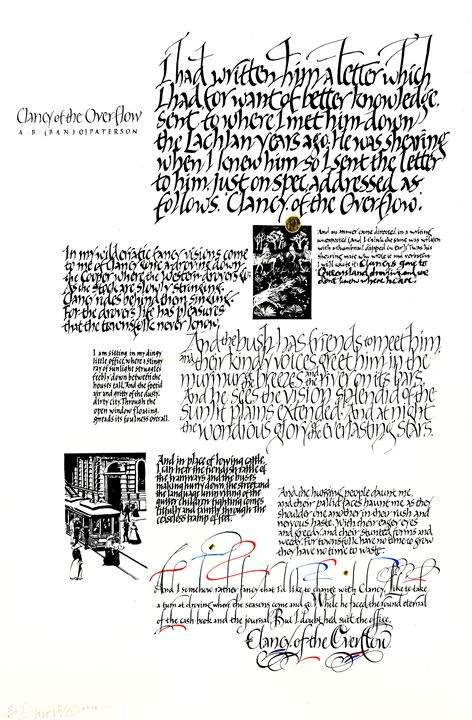 Clancy of the Overflow
A·B·(BANJO)PATERSON
I had written him a letter which
I had for want of better knowledge,
sent to where I met him down
the Lachlan years ago. He was shearing
when I knew him, so I sent the letter
to him, just on spec, addressed as
follows, 'Clancy, of the Overflow.'
And an answer came directed in a writing
unexpected (and I think the same was written
with a thumbnail dipped in tar) 'Twas his
shearing mate who wrote it and verbatim
I will quote it: Clancy's gone to
Queensland droving and we
don't know where he are.
In my wild erratic fancy visions come
to me of Clancy gone a droving down
the Cooper where the Western drovers go
As the stock are slowly stringing,
Clancy rides behind them singing
For the drover's life has pleasures
that the townsfolk never know.
And the bush has friends to meet him
and their kindly voices greet him in the
murmur of the breezes and the river on its bars
And he sees the vision splendid of the
sunlit plains extended And at night
the wondrous glory of the everlasting stars.
I am sitting in my dingy
little office, where a stingy
ray of sunlight struggles
feebly down between the
houses tall, And the foetid
air and gritty of the dusty,
dirty city, Through the
open window floating,
spreads its foulness over all.
And in place of lowing cattle,
I can hear the fiendish rattle of
the tramways and the buses
making hurry down the street and
the language uninviting of the
gutter children fighting comes
fitfully and faintly through the
ceaseless tramp of feet.
And the hurrying people daunt me,
and their pallid faces haunt me as they
shoulder one another in their rush and
nervous haste, With their eager eyes
and greedy, and their stunted forms and
weedy. For townsfolk have no time to grow
they have no time to waste.
And I somehow rather fancy that I'd like to change with Clancy, Like to take
a turn at droving where the seasons come and go, While he faced the round eternal
of the cash book and the journal, But I doubt he'd suit the office,
Clancy, of the Overflow.